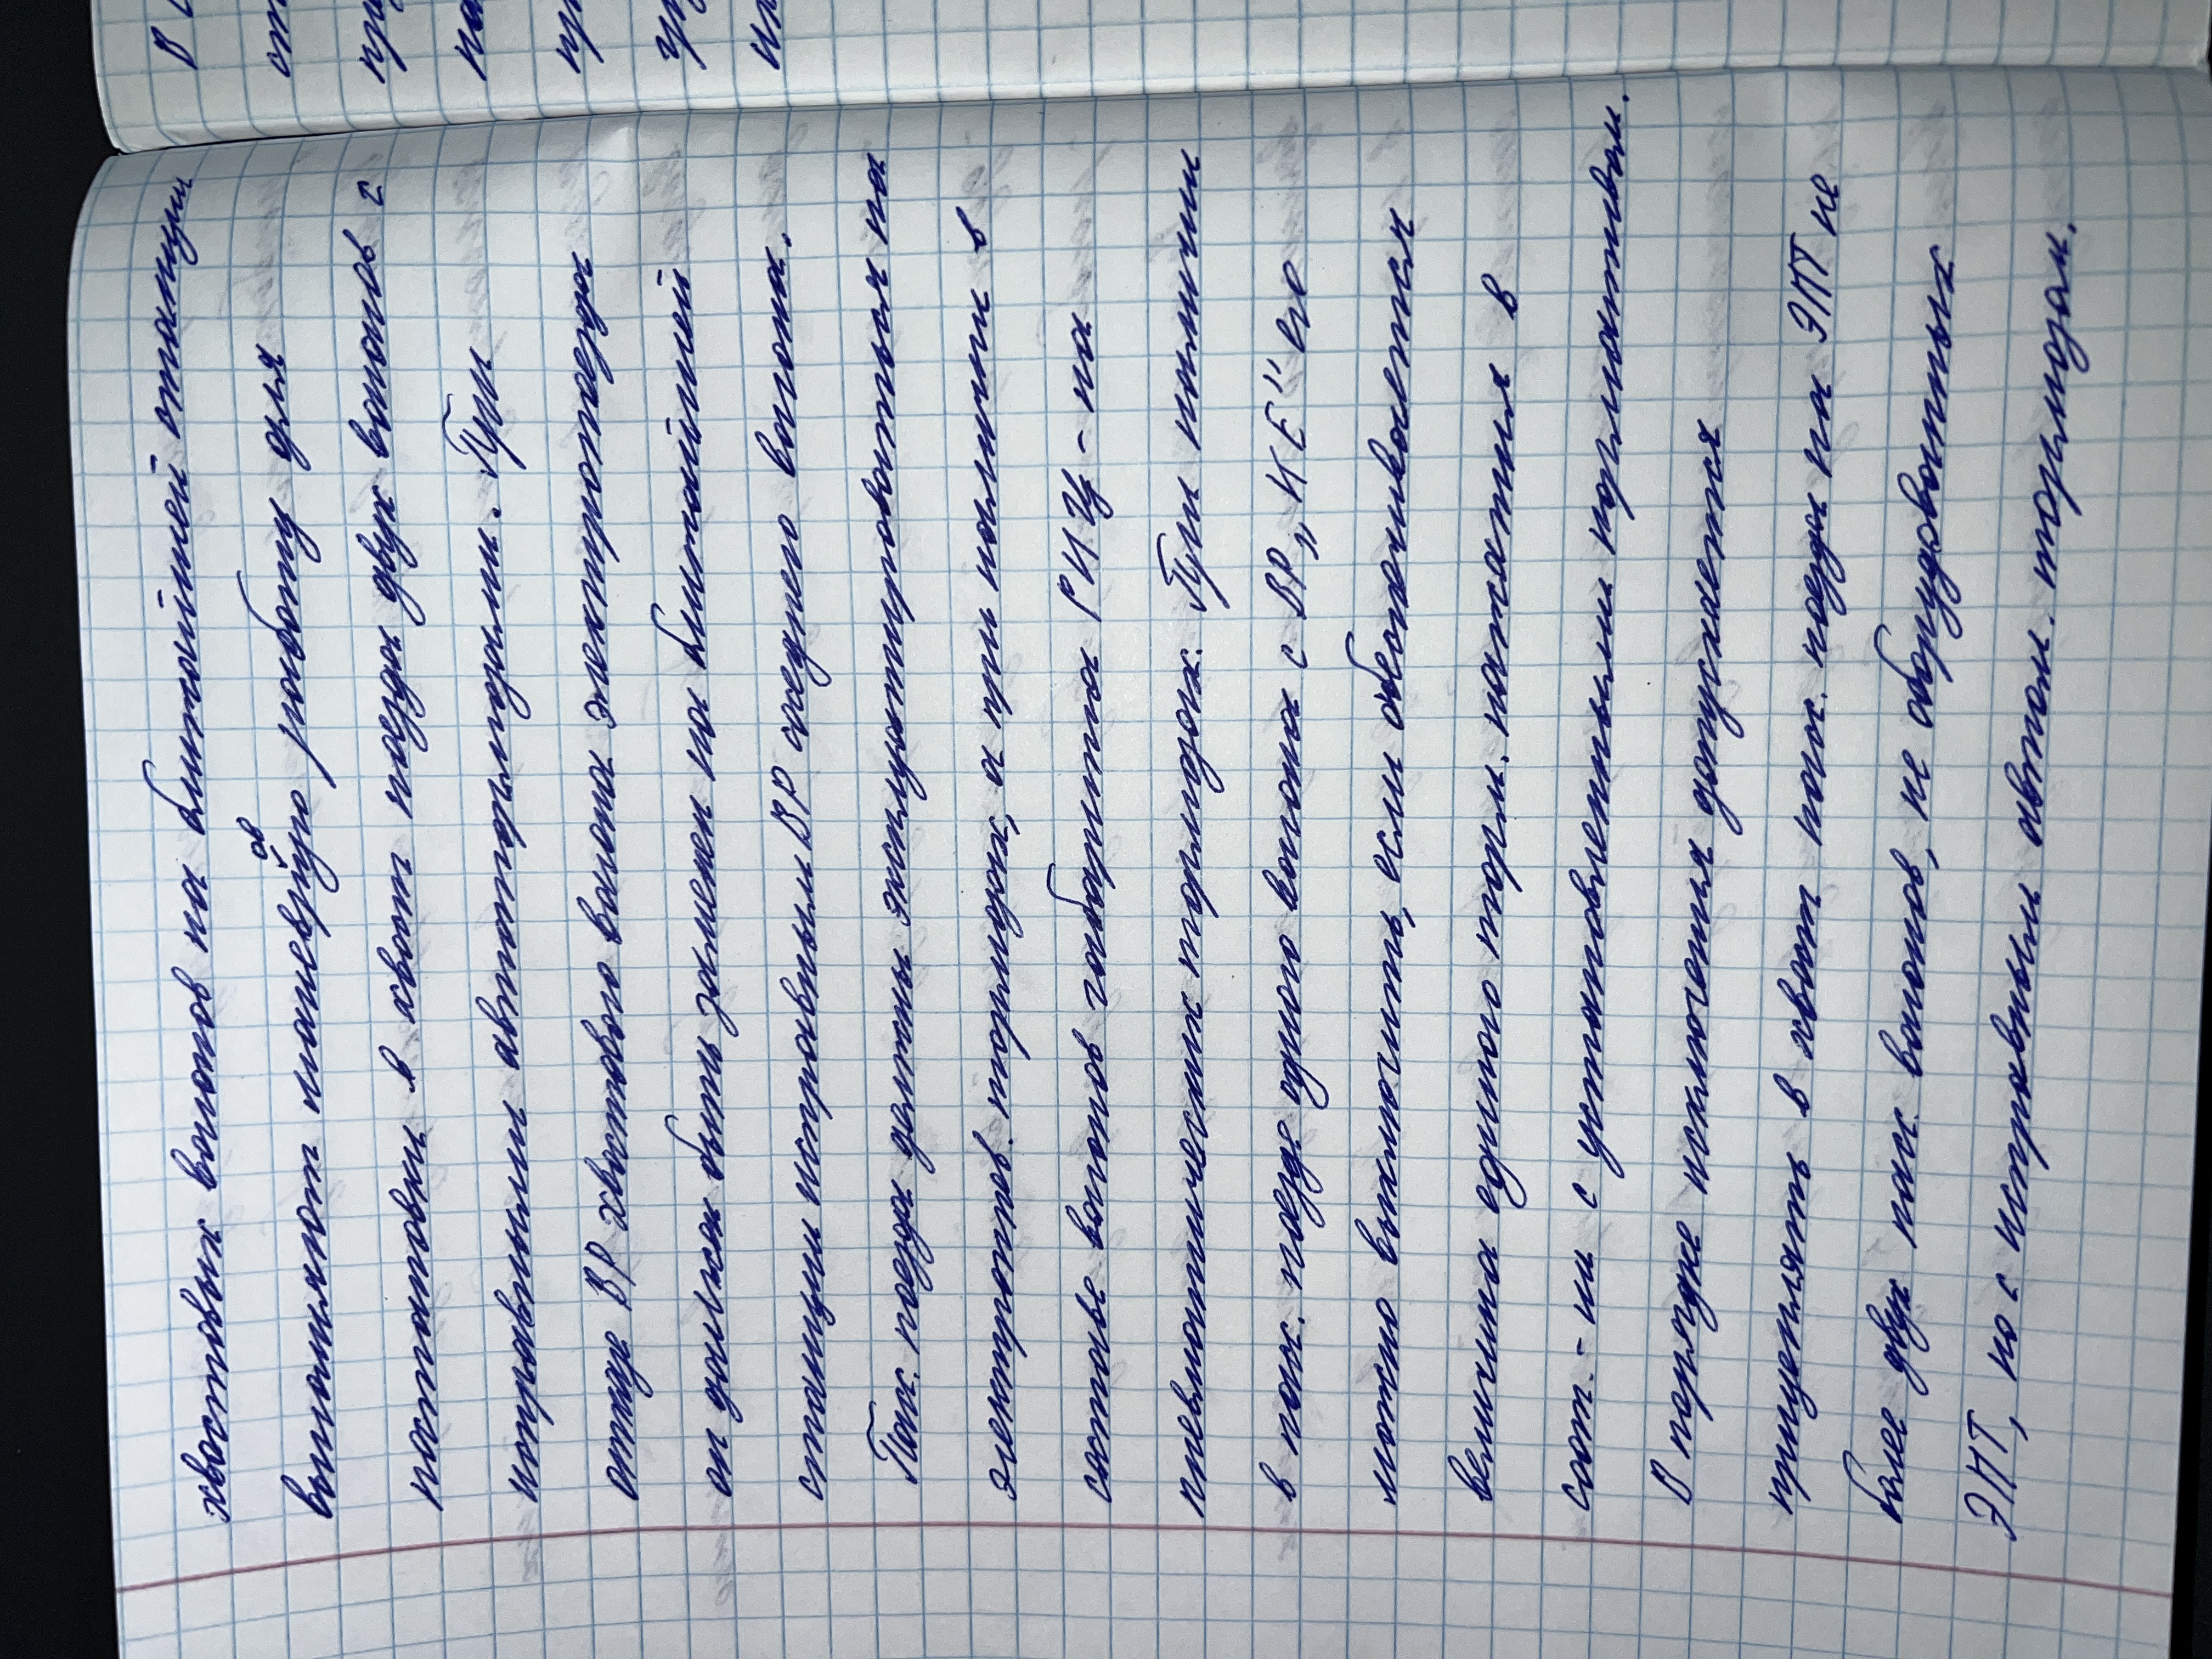 хвостовых вагонов на ближайшей станции
выполняют маневровую работу для
постановки в хвост поезда двух вагонов с
исправными автотормозами. При
отказе ВР хвостового вагона электропоезда
он должен быть заменен на ближайшей
станции исправным ВР среднего вагона.
Пасс. поезда должны эксплуатироваться на
электропнев. тормозах, а при наличии в
составе вагонов габарита РИЦ - на
пневматических тормозах. При наличии
в пасс. поезде одного вагона с ВР „КЕ" его
можно выключить, если обеспечивается
величина единого торм. нажатия в
соот-ии с установленным нормативом.
В порядке исключения допускается
прицеплять в хвост пасс. поезда на ЭПТ не
более двух пасс. вагонов, не оборудованных
ЭПТ, но с исправным автом. тормозом.
В
от
пр
на
пр
гр